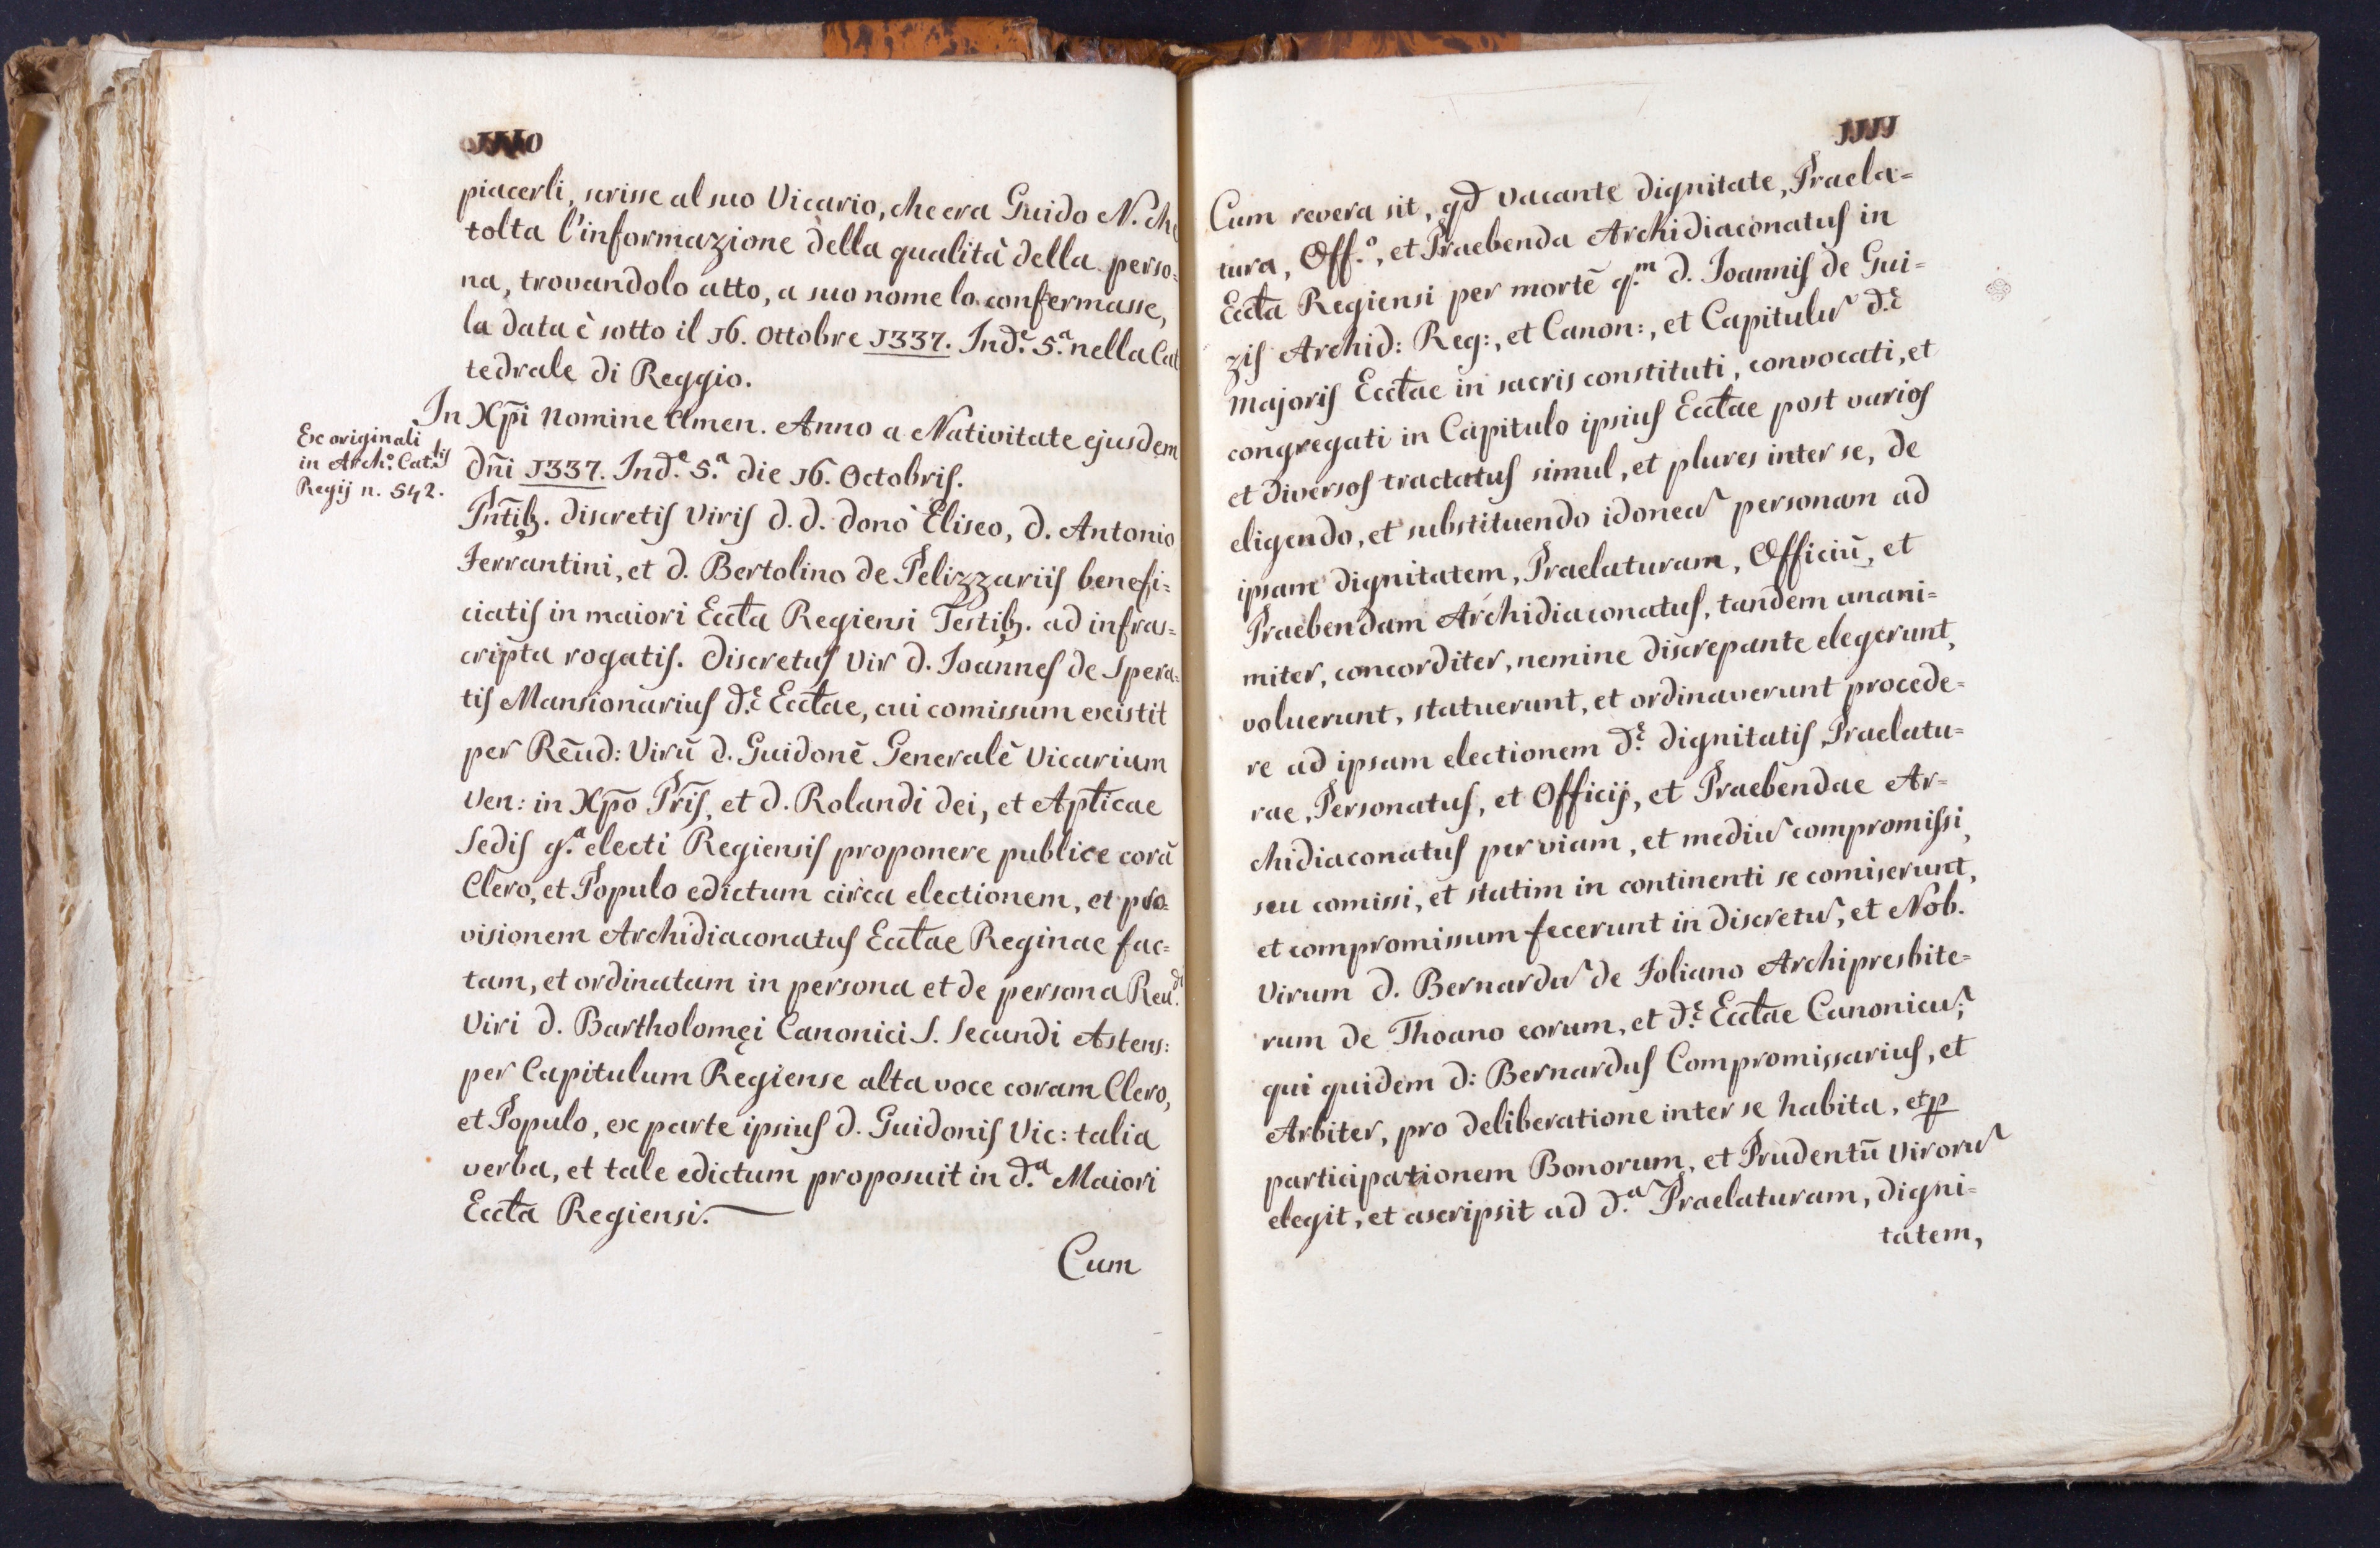 piacerli, scrisse al suo Vicario, che era Guido N. che
tolta l'informazione della qualità della perso=
na, trovandolo atto, a suo nome lo confermasse,
la data è sotto il 16. Ottobre 1337. Ind.e 5.a nella Cat
tedrale di Reggio.
In Xp̄i Nomine Amen. Anno a Nativitate ejusdem
Ex originali
in Arch.o Cat.lis
Regij n. 542.
Dn̄i 1337. Ind.e 5.a die 16. Octobris.
Pn̄tib. discretis Viris d. d. dono Eliseo, d. Antonio
Ferrantini, et d. Bertolino de Pelizzariis benefi=
ciatis in maiori Eccta Regiensi Testib. ad infras=
cripta rogatis. Discretus Vir d. Joannes de Spera=
tis Mansionarius d.e Ecctae, cui comissum existit
per Rēud: Virū d. Guidonē Generalē Vicarium
Ven: in Xp̄o P̄ris, et d. Rolandi dei, et Apticae
Sedis g.a electi Regiensis proponere publice corā
Clero, et Populo edictum circa electionem, et pro=
visionem Archidiaconatus Ecctae Reginae fac=
tam, et ordinatam in persona et de persona Reu.di
Viri d. Bartholomęi Canonici S. Secundi Astens:
per Capitulum Regiense alta voce coram Clero,
et Populo, ex parte ipsius d. Guidonis Vic: talia
verba, et tale edictum proposuit in d.a Maiori
Eccta Regiensi.
Cum
1111
Cum revera sit, qd vacante dignitate, Praela=
tura, Off.o, et Praebenda Archidiaconatus in
Eccta Regiensi per mortē q.m d. Joannis de Gui=
zis Archid: Reg:, et Canon:, et Capitulū d.e
majoris Ecctae in sacris constituti, convocati, et
congregati in Capitulo ipsius Ecctae post varios
et diversos tractatus simul, et plures inter se, de
eligendo, et substituendo idoneā personam ad
ipsam dignitatem, Praelaturam, Officiū, et
Praebendam Archidiaconatus, tandem unani=
miter, concorditer, nemine discrepante elegerunt,
voluerunt, statuerunt, et ordinaverunt procede=
re ad ipsam electionem d.e dignitatis, Praelatu=
rae, Personatus, et Officij, et Praebendae Ar=
chidiaconatus per viam, et mediū compromissi,
seu comissi, et statim in continenti se comiserunt,
et compromissum fecerunt in discretū, et Nob.
Virum d. Bernardū de Foliano Archipresbite=
rum de Thoano eorum, et d.e Ecctae Canonicū;
qui quidem d: Bernardus Compromissarius, et
Arbiter, pro deliberatione inter se habita, et p̱
participationem Bonorum, et Prudentū Virorū
elegit, et ascripsit ad d.a Praelaturam, digni=
tatem,